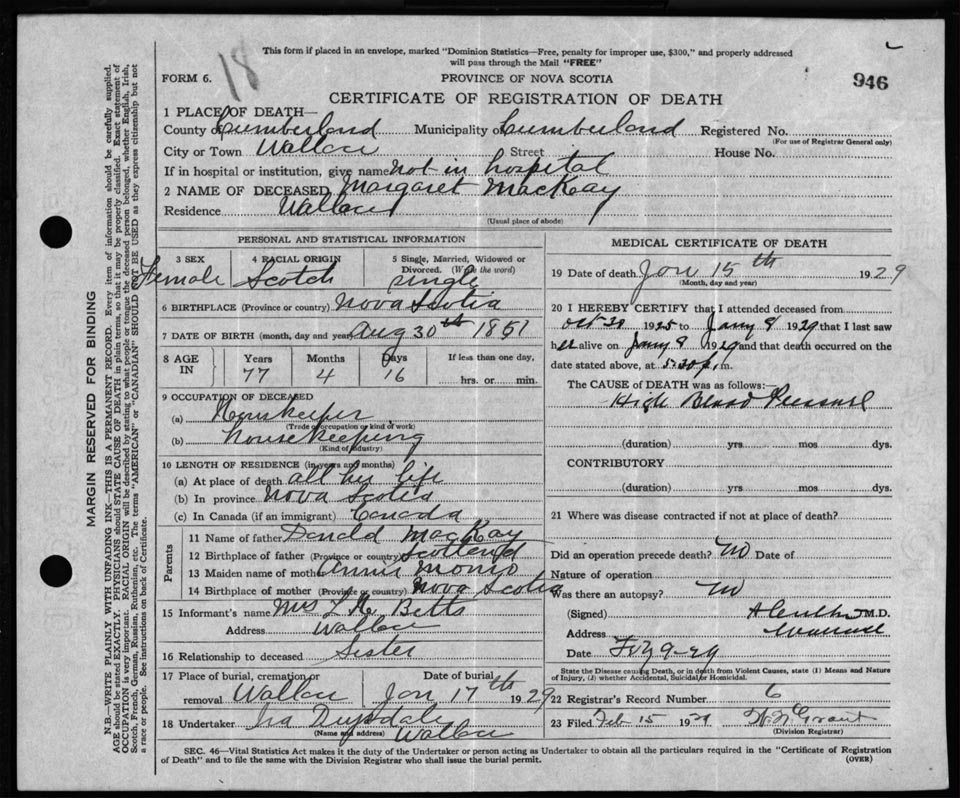 This form if placed in an envelope, marked "Dominion Statistics—Free, penalty for improper use, $300," and properly addressed
will pass through the Mail "FREE"
FORM 6.
81
PROVINCE OF NOVA SCOTIA
946
CERTIFICATE OF REGISTRATION OF DEATH
1 PLACE OF DEATH—
County of Cumberland Municipality of Cumberland Registered No.
(For use of Registrar General only)
City or Town Wallace Street House No.
If in hospital or institution, give name not in hospital
2 NAME OF DECEASED Margaret MacKay
Residence Wallace
(Usual place of abode)
PERSONAL AND STATISTICAL INFORMATION
3 SEX 4 RACIAL ORIGIN 5 Single, Married, Widowed or
Divorced. (Write the word)
Female Scotch Single
6 BIRTHPLACE (Province or country) Nova Scotia
7 DATE OF BIRTH (month, day and year) Aug 30th 1851
8 AGE IN Years Months Days If less than one day,
77 4 16 hrs. or min.
9 OCCUPATION OF DECEASED
(a) Housekeeper
(Trade occupation or kind of work)
(b) housekeeping
(Kind of industry)
10 LENGTH OF RESIDENCE (in years and months)
(a) At place of death all her life
(b) In province Nova Scotia
(c) In Canada (if an immigrant) Canada
Parents
11 Name of father Donald MacKay
12 Birthplace of father (Province or country) Scotland
13 Maiden name of mother Annie Monro
14 Birthplace of mother (Province or country) Nova Scotia
15 Informant's name Mrs Betts
Address Wallace
16 Relationship to deceased Sister
17 Place of burial, cremation or Date of burial
removal Wallace Jan 17th 1929
18 Undertaker Ira Drysdale
(Name and address) Wallace
MEDICAL CERTIFICATE OF DEATH
19 Date of death Jan 15th 1929
(Month, day and year)
20 I HEREBY CERTIFY that I attended deceased from
Oct 31 1925 to Jany 9 1929 that I last saw
her alive on Jany 9 1929 and that death occurred on the
date stated above, at 5.30 p. m.
The CAUSE OF DEATH was as follows:—
High Blood Pressure
(duration) yrs mos dys.
CONTRIBUTORY
(duration) yrs mos dys.
21 Where was disease contracted if not at place of death?
Did an operation precede death? No Date of
Nature of operation
Was there an autopsy? No
(Signed) M.D.
Address Wallace
Date Feb 9-29
State the Disease causing Death, or in death from Violent Causes, state (1) Means and Nature
of Injury, (2) whether Accidental, Suicidal or Homicidal.
22 Registrar's Record Number 6
23 Filed Feb 15 1929 Grant
(Division Registrar)
SEC. 46—Vital Statistics Act makes it the duty of the Undertaker or person acting as Undertaker to obtain all the particulars required in the "Certificate of Registration
of Death" and to file the same with the Division Registrar who shall issue the burial permit.
(OVER)
MARGIN RESERVED FOR BINDING
N.B.—WRITE PLAINLY WITH UNFADING INK—THIS IS A PERMANENT RECORD. Every item of information should be carefully supplied.
AGE should be stated EXACTLY. PHYSICIANS should STATE CAUSE OF DEATH in plain terms, so that it may be properly classified. Exact statement of
OCCUPATION is very important. RACIAL ORIGIN will be described by stating to what people or tongue the deceased person belonged, whether English, Irish,
Scotch, French, German, Russian, Ruthenian, etc. The terms "AMERICAN" or "CANADIAN" SHOULD NOT BE USED as they express citizenship but not
a race or people. See instructions on back of Certificate.